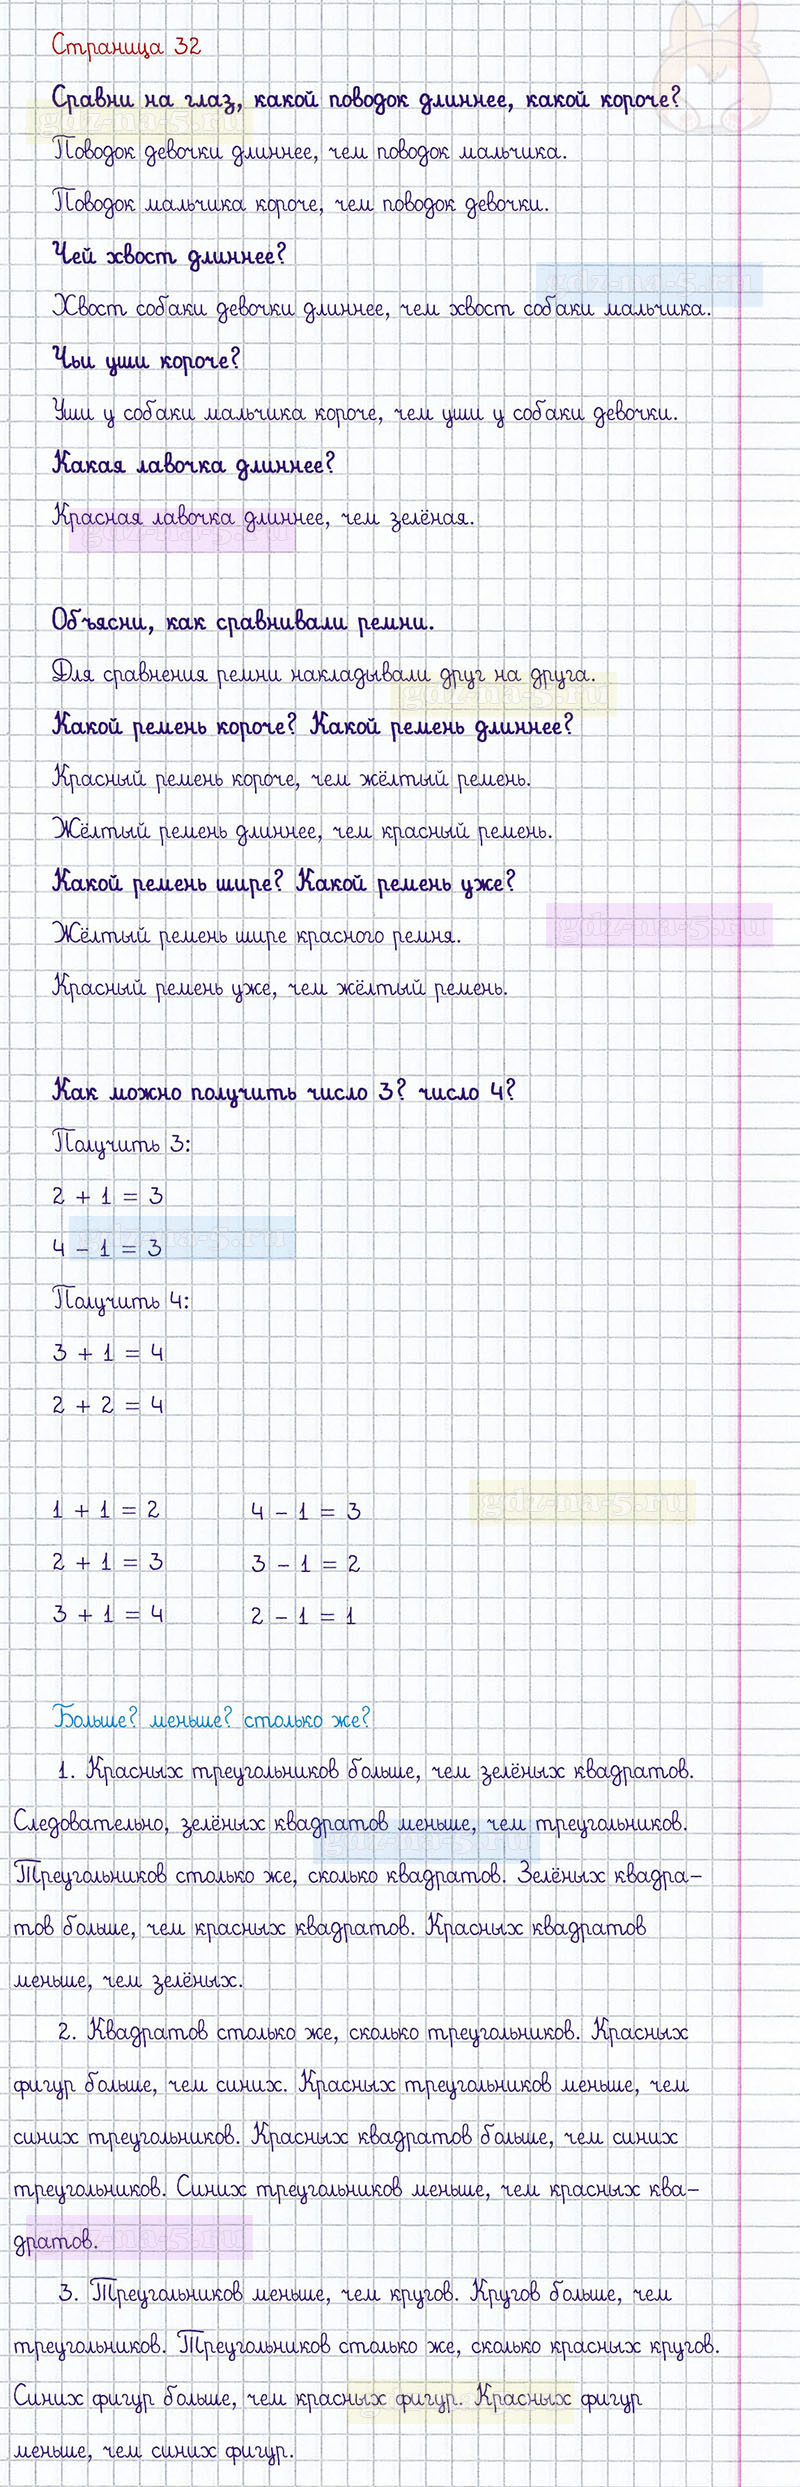 Страница 32
Сравни на глаз, какой поводок длиннее, какой короче?
Поводок девочки длиннее, чем поводок мальчика.
Поводок мальчика короче, чем поводок девочки.
Чей хвост длиннее?
Хвост собаки девочки длиннее, чем хвост собаки мальчика.
Чьи уши короче?
Уши у собаки мальчика короче, чем уши у собаки девочки.
Какая лавочка длиннее?
Красная лавочка длиннее, чем зелёная.
Объясни, как сравнивали ремни.
Для сравнения ремни накладывали друг на друга.
Какой ремень короче? Какой ремень длиннее?
Красный ремень короче, чем жёлтый ремень.
Жёлтый ремень длиннее, чем красный ремень.
Какой ремень шире? Какой ремень уже?
Жёлтый ремень шире красного ремня.
Красный ремень уже, чем жёлтый ремень.
Как можно получить число 3? число 4?
Получить 3:
2 + 1 = 3
4 - 1 = 3
Получить 4:
3 + 1 = 4
2 + 2 = 4
1 + 1 = 2 4 - 1 = 3
2 + 1 = 3 3 - 1 = 2
3 + 1 = 4 2 - 1 = 1
Больше? меньше? столько же?
1. Красных треугольников больше, чем зелёных квадратов.
Следовательно, зелёных квадратов меньше, чем треугольников.
Треугольников столько же, сколько квадратов. Зелёных квадра-
тов больше, чем красных квадратов. Красных квадратов
меньше, чем зелёных.
2. Квадратов столько же, сколько треугольников. Красных
фигур больше, чем синих. Красных треугольников меньше, чем
синих треугольников. Красных квадратов больше, чем синих
треугольников. Синих треугольников меньше, чем красных ква-
дратов.
3. Треугольников меньше, чем кругов. Кругов больше, чем
треугольников. Треугольников столько же, сколько красных кругов.
Синих фигур больше, чем красных фигур. Красных фигур
меньше, чем синих фигур.
gdz-na-5.ru
gdz-na-5.ru
gdz-na-5.ru
gdz-na-5.ru
gdz-na-5.ru
gdz-na-5.ru
gdz-na-5.ru
gdz-na-5.ru
gdz-na-5.ru
gdz-na-5.ru